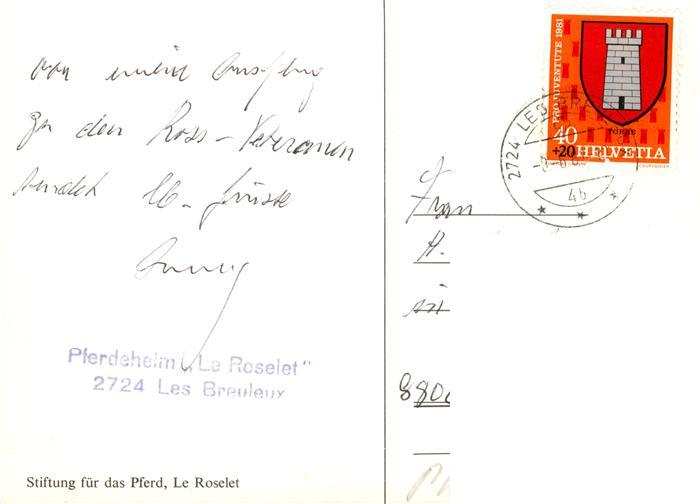 von mein Ausflug
zu den Ross-Veteranen
sendet lb. Grüsse
Pferdeheim "Le Roselet"
2724 Les Breuleux
Stiftung für das Pferd, Le Roselet
PRO JUVENTUTE 1981
40
+20 HELVETIA
2724 LES BR
4b
Frau
H.
in
880